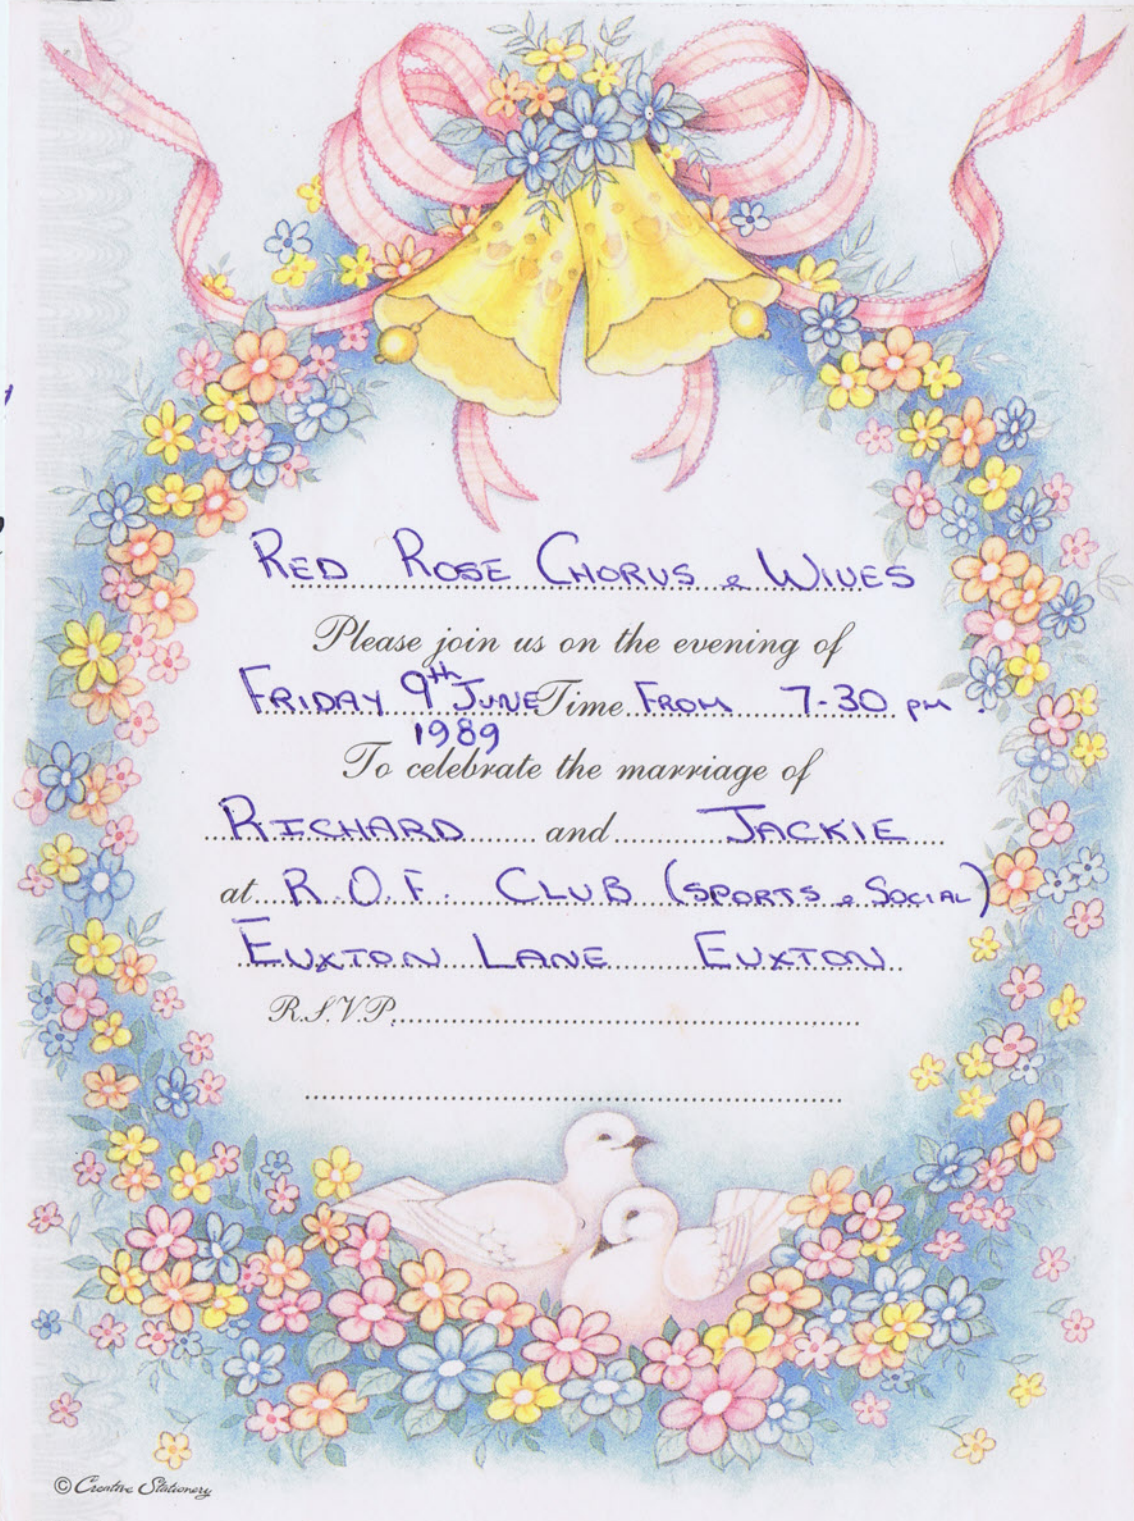 RED ROSE CHORUS & WIVES
Please join us on the evening of
FRIDAY 9th JUNE Time FROM 7-30 pm.
1989
To celebrate the marriage of
RICHARD and JACKIE
at R.O.F. CLUB (SPORTS & SOCIAL)
EUXTON LANE EUXTON
R.S.V.P.
© Creative Stationery